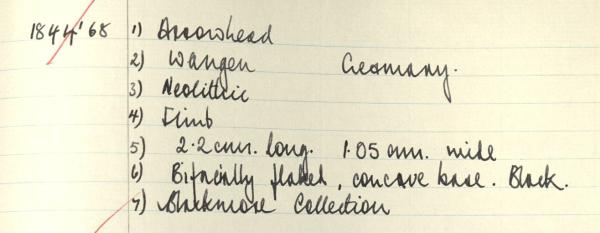 1844'68 1) Arrowhead
2) Wangen Germany.
3) Neolithic
4) Flint
5) 2.2 cm. long. 1.05 cm. wide
6) Bifacially flaked, concave base. Black.
7) Blackmore Collection